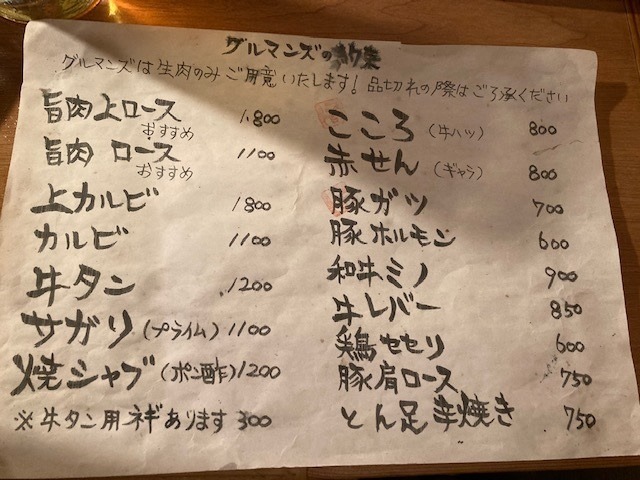 グルマンズの
グルマンズは生肉のみご用意いたします！品切れの際はご了承ください
旨肉上ロース 1,800
おすすめ
旨肉 ロース 1100
おすすめ
上カルビ 1800
カルビ 1100
牛タン 1200
サガリ(プライム) 1100
焼シャブ(ポン酢) 1200
※牛タン用ネギあります 300
こころ(牛ハツ) 800
赤せん(ギャラ) 800
豚ガツ 700
豚ホルモン 600
和牛ミノ 900
牛レバー 850
鶏セセリ 600
豚肩ロース 750
とん足辛焼き 750